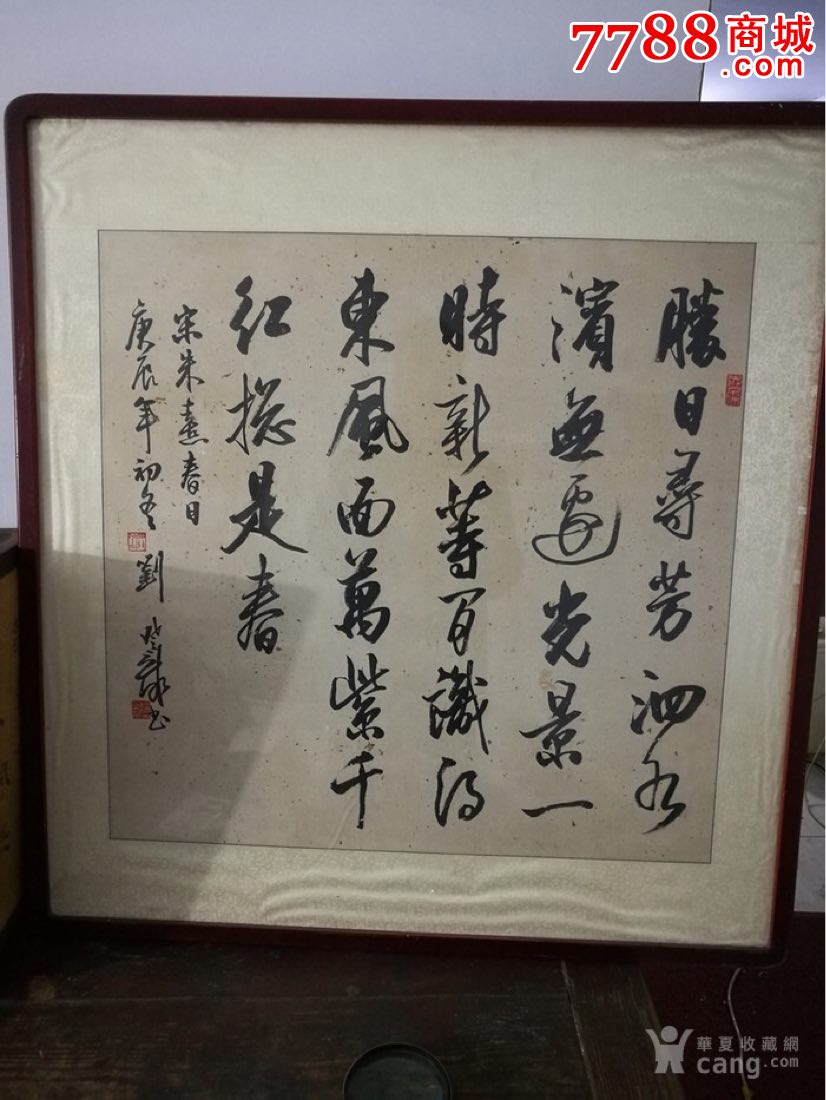 7788商城
.com
勝日尋芳泗水
濱無邊光景一
時新等閒識得
東風面萬紫千
紅總是春
宋朱熹春日
庚辰年初冬 劉 书
華夏收藏網
cang.com